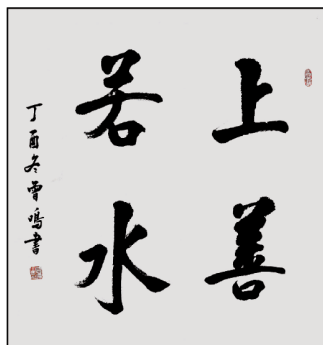 上善
若水
丁酉冬鳴書